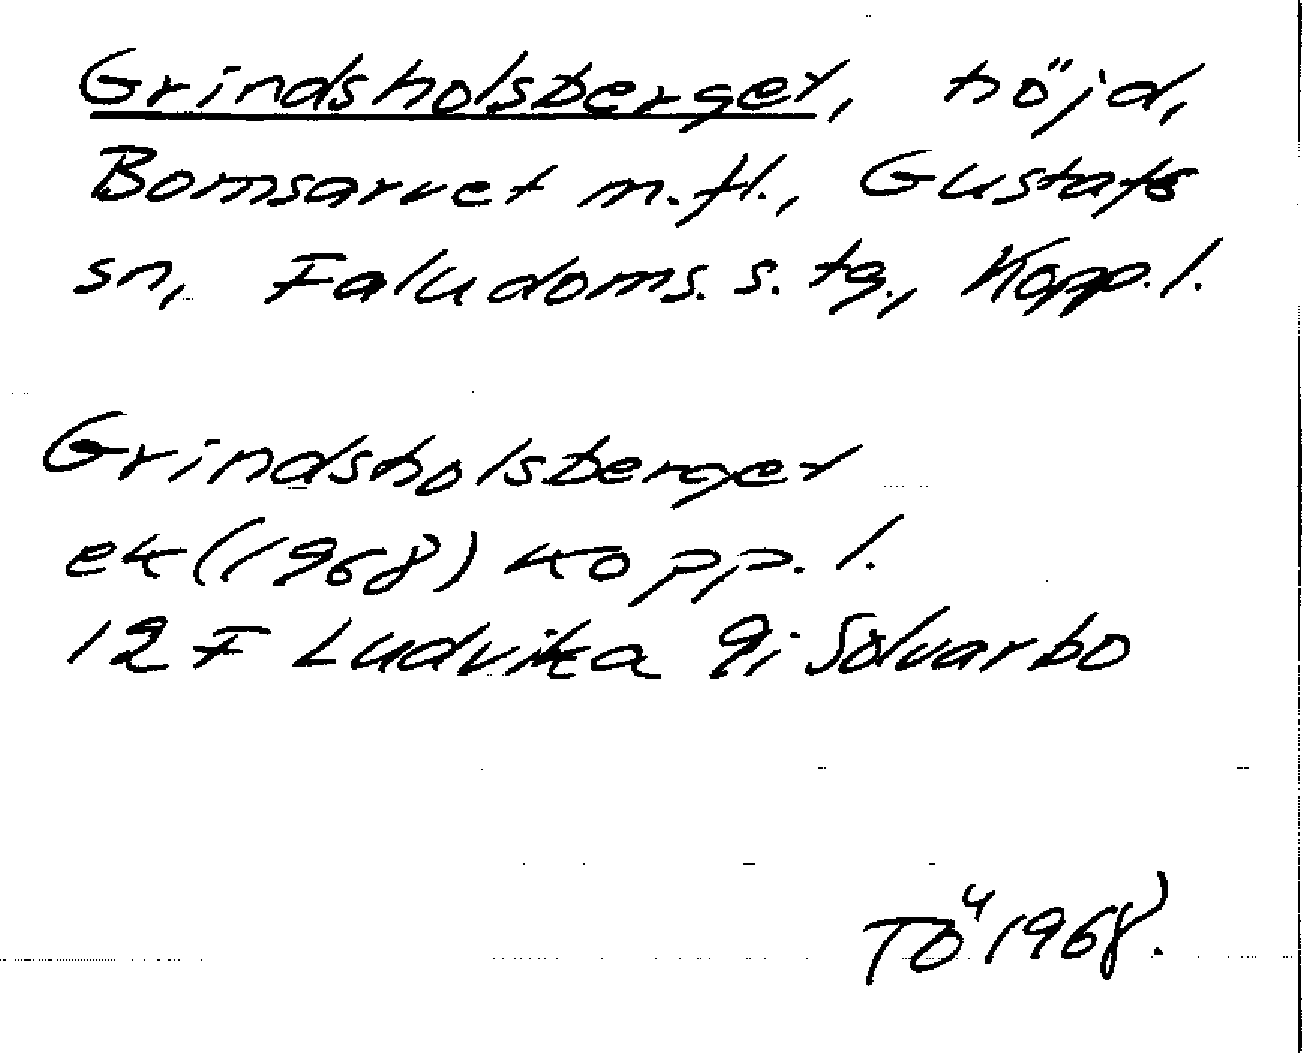 Grindsholsberget, höjd,
Bomsarvet m.fl., Gustafs
sn, Faludoms. s. tg., Kopp. l.
Grindsholsberget
ek (1968) kopp. l.
12 F Ludvika 9i Solvarbo
TÖ 1968.